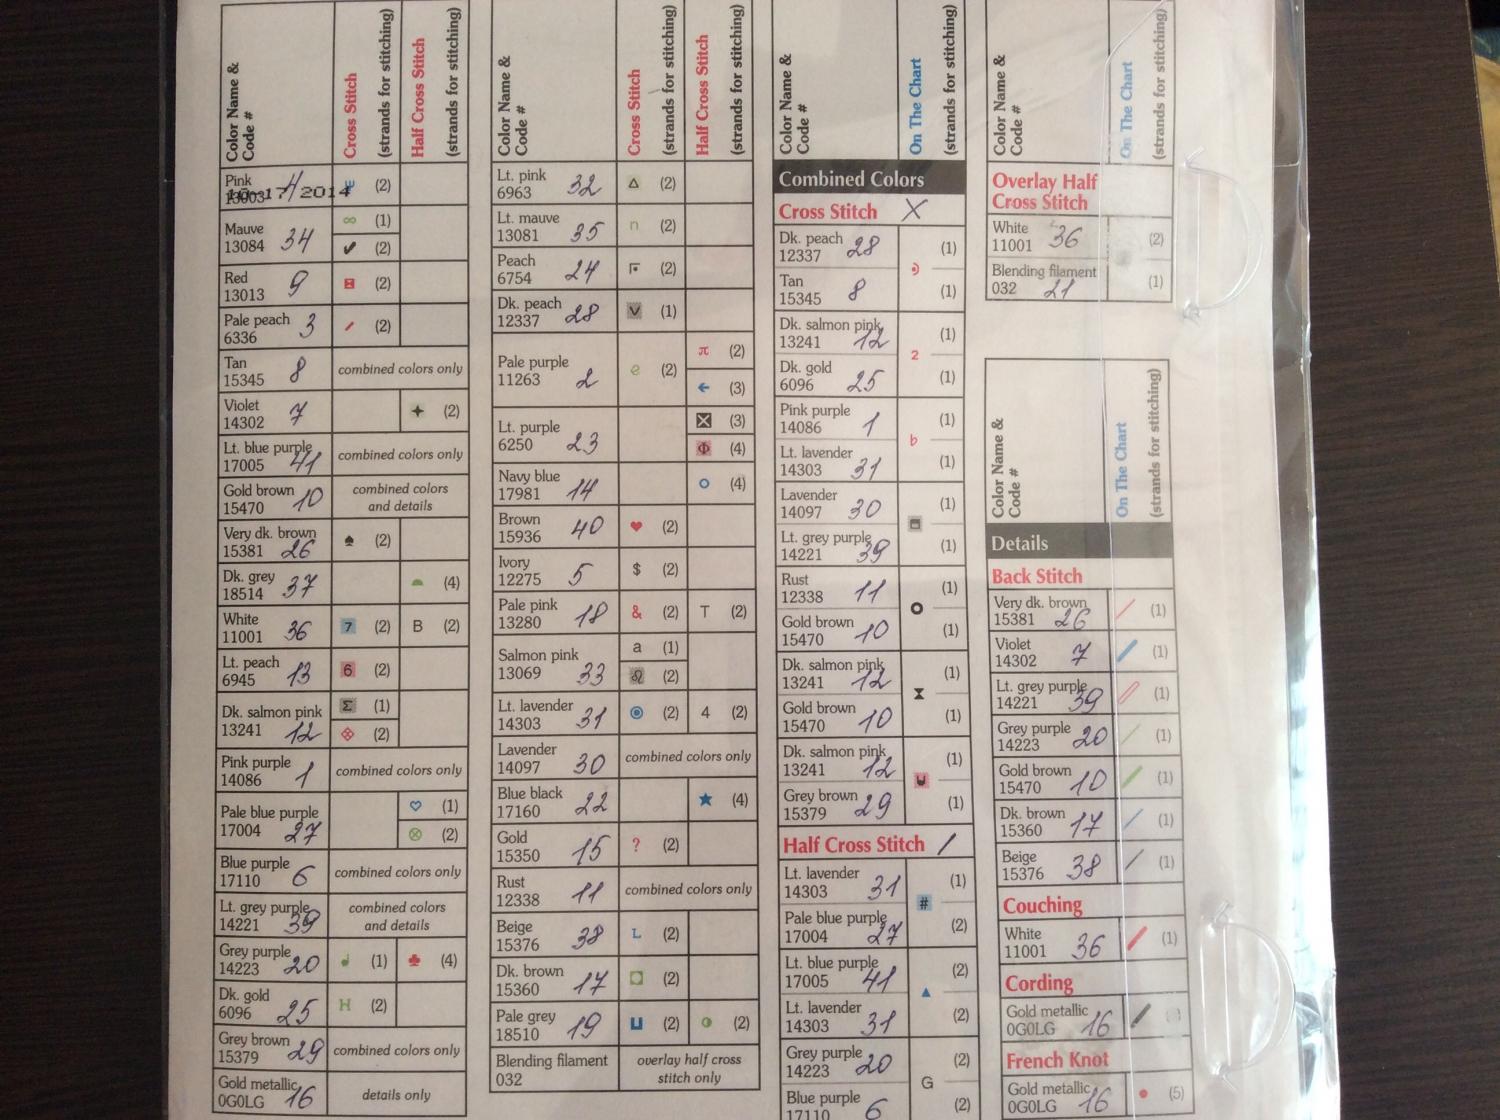 Color Name &
Code #
Cross Stitch
(strands for stitching)
Half Cross Stitch
(strands for stitching)
Pink 4 Ψ (2)
13003
10-17/2014
Mauve ∞ (1)
13084 34 ✔ (2)
Red 9 (2)
13013
Pale peach 3 / (2)
6336
Tan 8 combined colors only
15345
Violet 7 ✦ (2)
14302
Lt. blue purple combined colors only
17005 41
Gold brown 10 combined colors
15470 and details
Very dk. brown ♠ (2)
15381 26
Dk. grey 37 (4)
18514
White 36 7 (2) B (2)
11001
Lt. peach 13 6 (2)
6945
Dk. salmon pink Σ (1)
13241 12 (2)
Pink purple 1 combined colors only
14086
Pale blue purple ♡ (1)
17004 27 ⊗ (2)
Blue purple 6 combined colors only
17110
Lt. grey purple combined colors
14221 39 and details
Grey purple (1) ♣ (4)
14223 20
Dk. gold 25 H (2)
6096
Grey brown 29 combined colors only
15379
Gold metallic 16 details only
0G0LG
Color Name &
Code #
Cross Stitch
(strands for stitching)
Half Cross Stitch
(strands for stitching)
Lt. pink 32 △ (2)
6963
Lt. mauve 35 n (2)
13081
Peach 24 (2)
6754
Dk. peach 28 V (1)
12337
Pale purple 2 e (2) π (2)
11263 ← (3)
Lt. purple 23 (3)
6250 Φ (4)
Navy blue 14 ○ (4)
17981
Brown 40 ♥ (2)
15936
Ivory 5 $ (2)
12275
Pale pink 18 & (2) T (2)
13280
Salmon pink 33 a (1)
13069 ♌ (2)
Lt. lavender 31 (2) 4 (2)
14303
Lavender 30 combined colors only
14097
Blue black 22 ★ (4)
17160
Gold 15 ? (2)
15350
Rust 11 combined colors only
12338
Beige 38 L (2)
15376
Dk. brown 17 (2)
15360
Pale grey 19 (2) (2)
18510
Blending filament overlay half cross
032 stitch only
Color Name &
Code #
On The Chart
(strands for stitching)
Combined Colors
Cross Stitch X
Dk. peach 28 (1)
12337
Tan 8 (1)
15345
Dk. salmon pink (1)
13241 12 2
Dk. gold 25 (1)
6096
Pink purple 1 (1)
14086 b
Lt. lavender 31 (1)
14303
Lavender 30 (1)
14097
Lt. grey purple (1)
14221 39
Rust 11 (1)
12338
Gold brown 10 (1)
15470
Dk. salmon pink (1)
13241 12
Gold brown 10 (1)
15470
Dk. salmon pink (1)
13241 12
Grey brown 29 (1)
15379
Half Cross Stitch /
Lt. lavender 31 (1)
14303 #
Pale blue purple (2)
17004 27
Lt. blue purple (2)
17005 41 ▲
Lt. lavender 31 (2)
14303
Grey purple 20 (2)
14223 G
Blue purple 6 (2)
17110
Color Name &
Code #
On The Chart
(strands for stitching)
Overlay Half
Cross Stitch
White 36 (2)
11001
Blending filament (1)
032 21
Color Name &
Code #
On The Chart
(strands for stitching)
Details
Back Stitch
Very dk. brown (1)
15381 26
Violet 7 (1)
14302
Lt. grey purple (1)
14221 39
Grey purple 20 (1)
14223
Gold brown 10 (1)
15470
Dk. brown 17 (1)
15360
Beige 38 (1)
15376
Couching
White 36 (1)
11001
Cording
Gold metallic 16
0G0LG
French Knot
Gold metallic 16 (5)
0G0LG